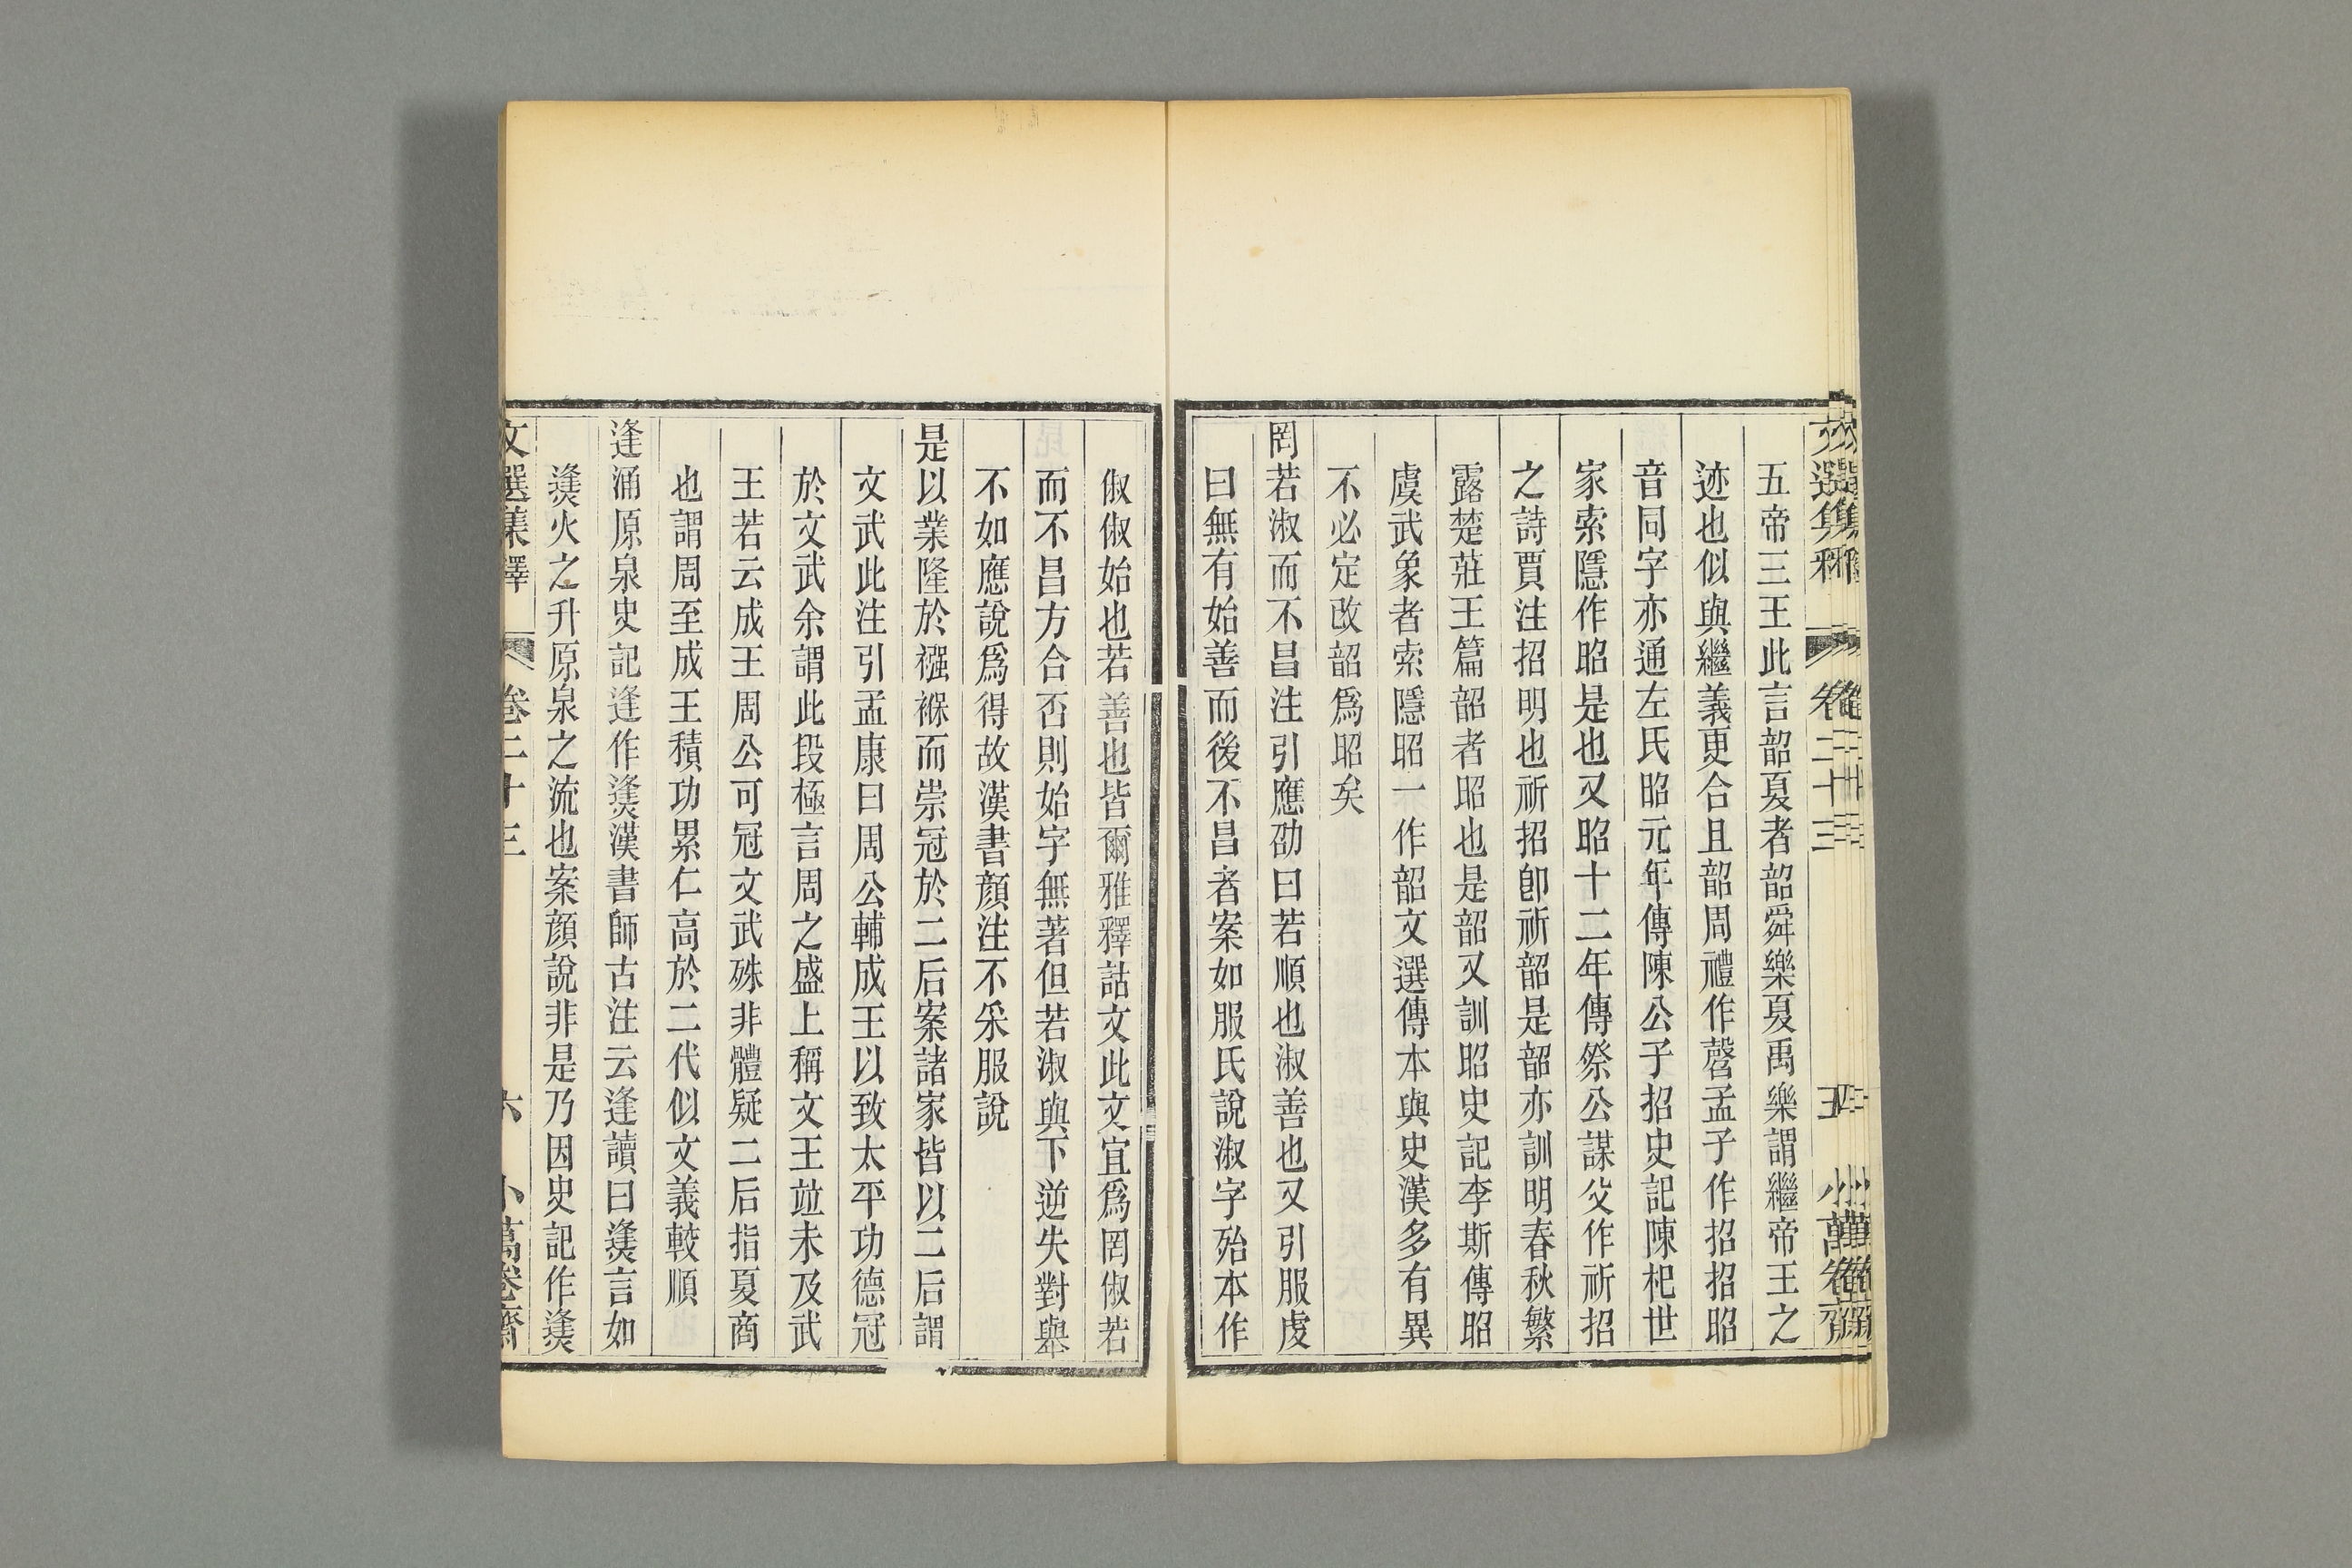 五帝三王此言韶夏者韶舜樂夏禹樂謂繼帝王之
迹也似與繼義更合且韶周禮作磬孟子作招招昭
音同字亦通左氏昭元年傳陳公子招史記陳杞世
家索隱作昭是也又昭十二年傳祭公謀父作祈招
之詩賈注招明也祈招卽祈韶是韶亦訓明春秋繁
露楚莊王篇韶者昭也是韶又訓昭史記李斯傳昭
虞武象者索隱昭一作韶文選傳本與史漢多有異
不必定改韶爲昭矣
罔若淑而不昌注引應劭曰若順也淑善也又引服虔
曰無有始善而後不昌者案如服氏說淑字殆本作
俶俶始也若善也皆爾雅釋詁文此文宜爲罔俶若
而不昌方合否則始字無著但若淑與下逆失對舉
不如應說爲得故漢書顏注不采服說
是以業隆於襁褓而崇冠於二后案諸家皆以二后謂
文武此注引孟康曰周公輔成王以致太平功德冠
於文武余謂此段極言周之盛上稱文王竝未及武
王若云成王周公可冠文武殊非體疑二后指夏商
也謂周至成王積功累仁高於二代似文義較順
逢涌原泉史記逢作㷭漢書師古注云逢讀曰㷭言如
㷭火之升原泉之流也案顏說非是乃因史記作㷭
文選集釋 卷二十三 六 小萬卷齋